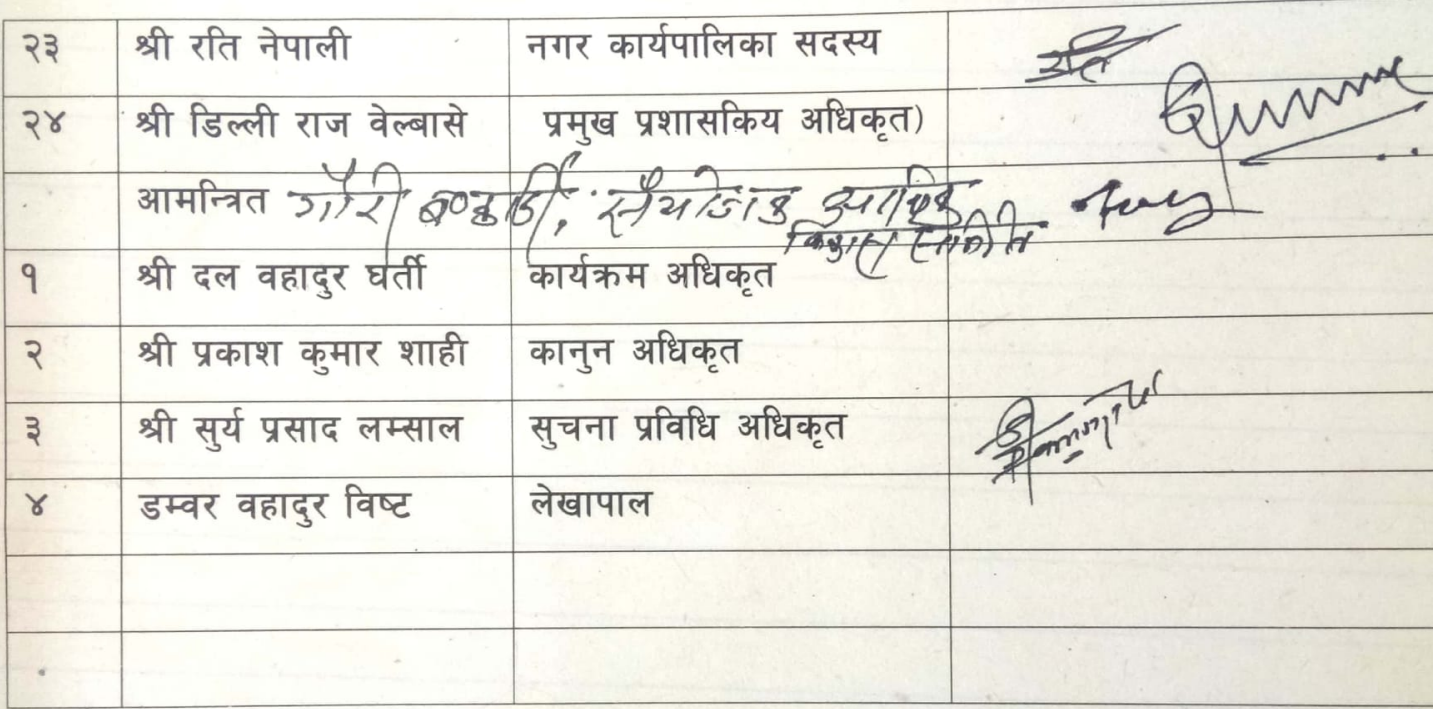 २३ श्री रति नेपाली नगर कार्यपालिका सदस्य रति
२४ श्री डिल्ली राज वेल्बासे प्रमुख प्रशासकिय अधिकृत)
आमन्त्रित गौरी भण्डारी, संयोजक आर्थिक
विकास समिति
१ श्री दल वहादुर घर्ती कार्यक्रम अधिकृत
२ श्री प्रकाश कुमार शाही कानुन अधिकृत
३ श्री सुर्य प्रसाद लम्साल सुचना प्रविधि अधिकृत
४ डम्वर वहादुर विष्ट लेखापाल